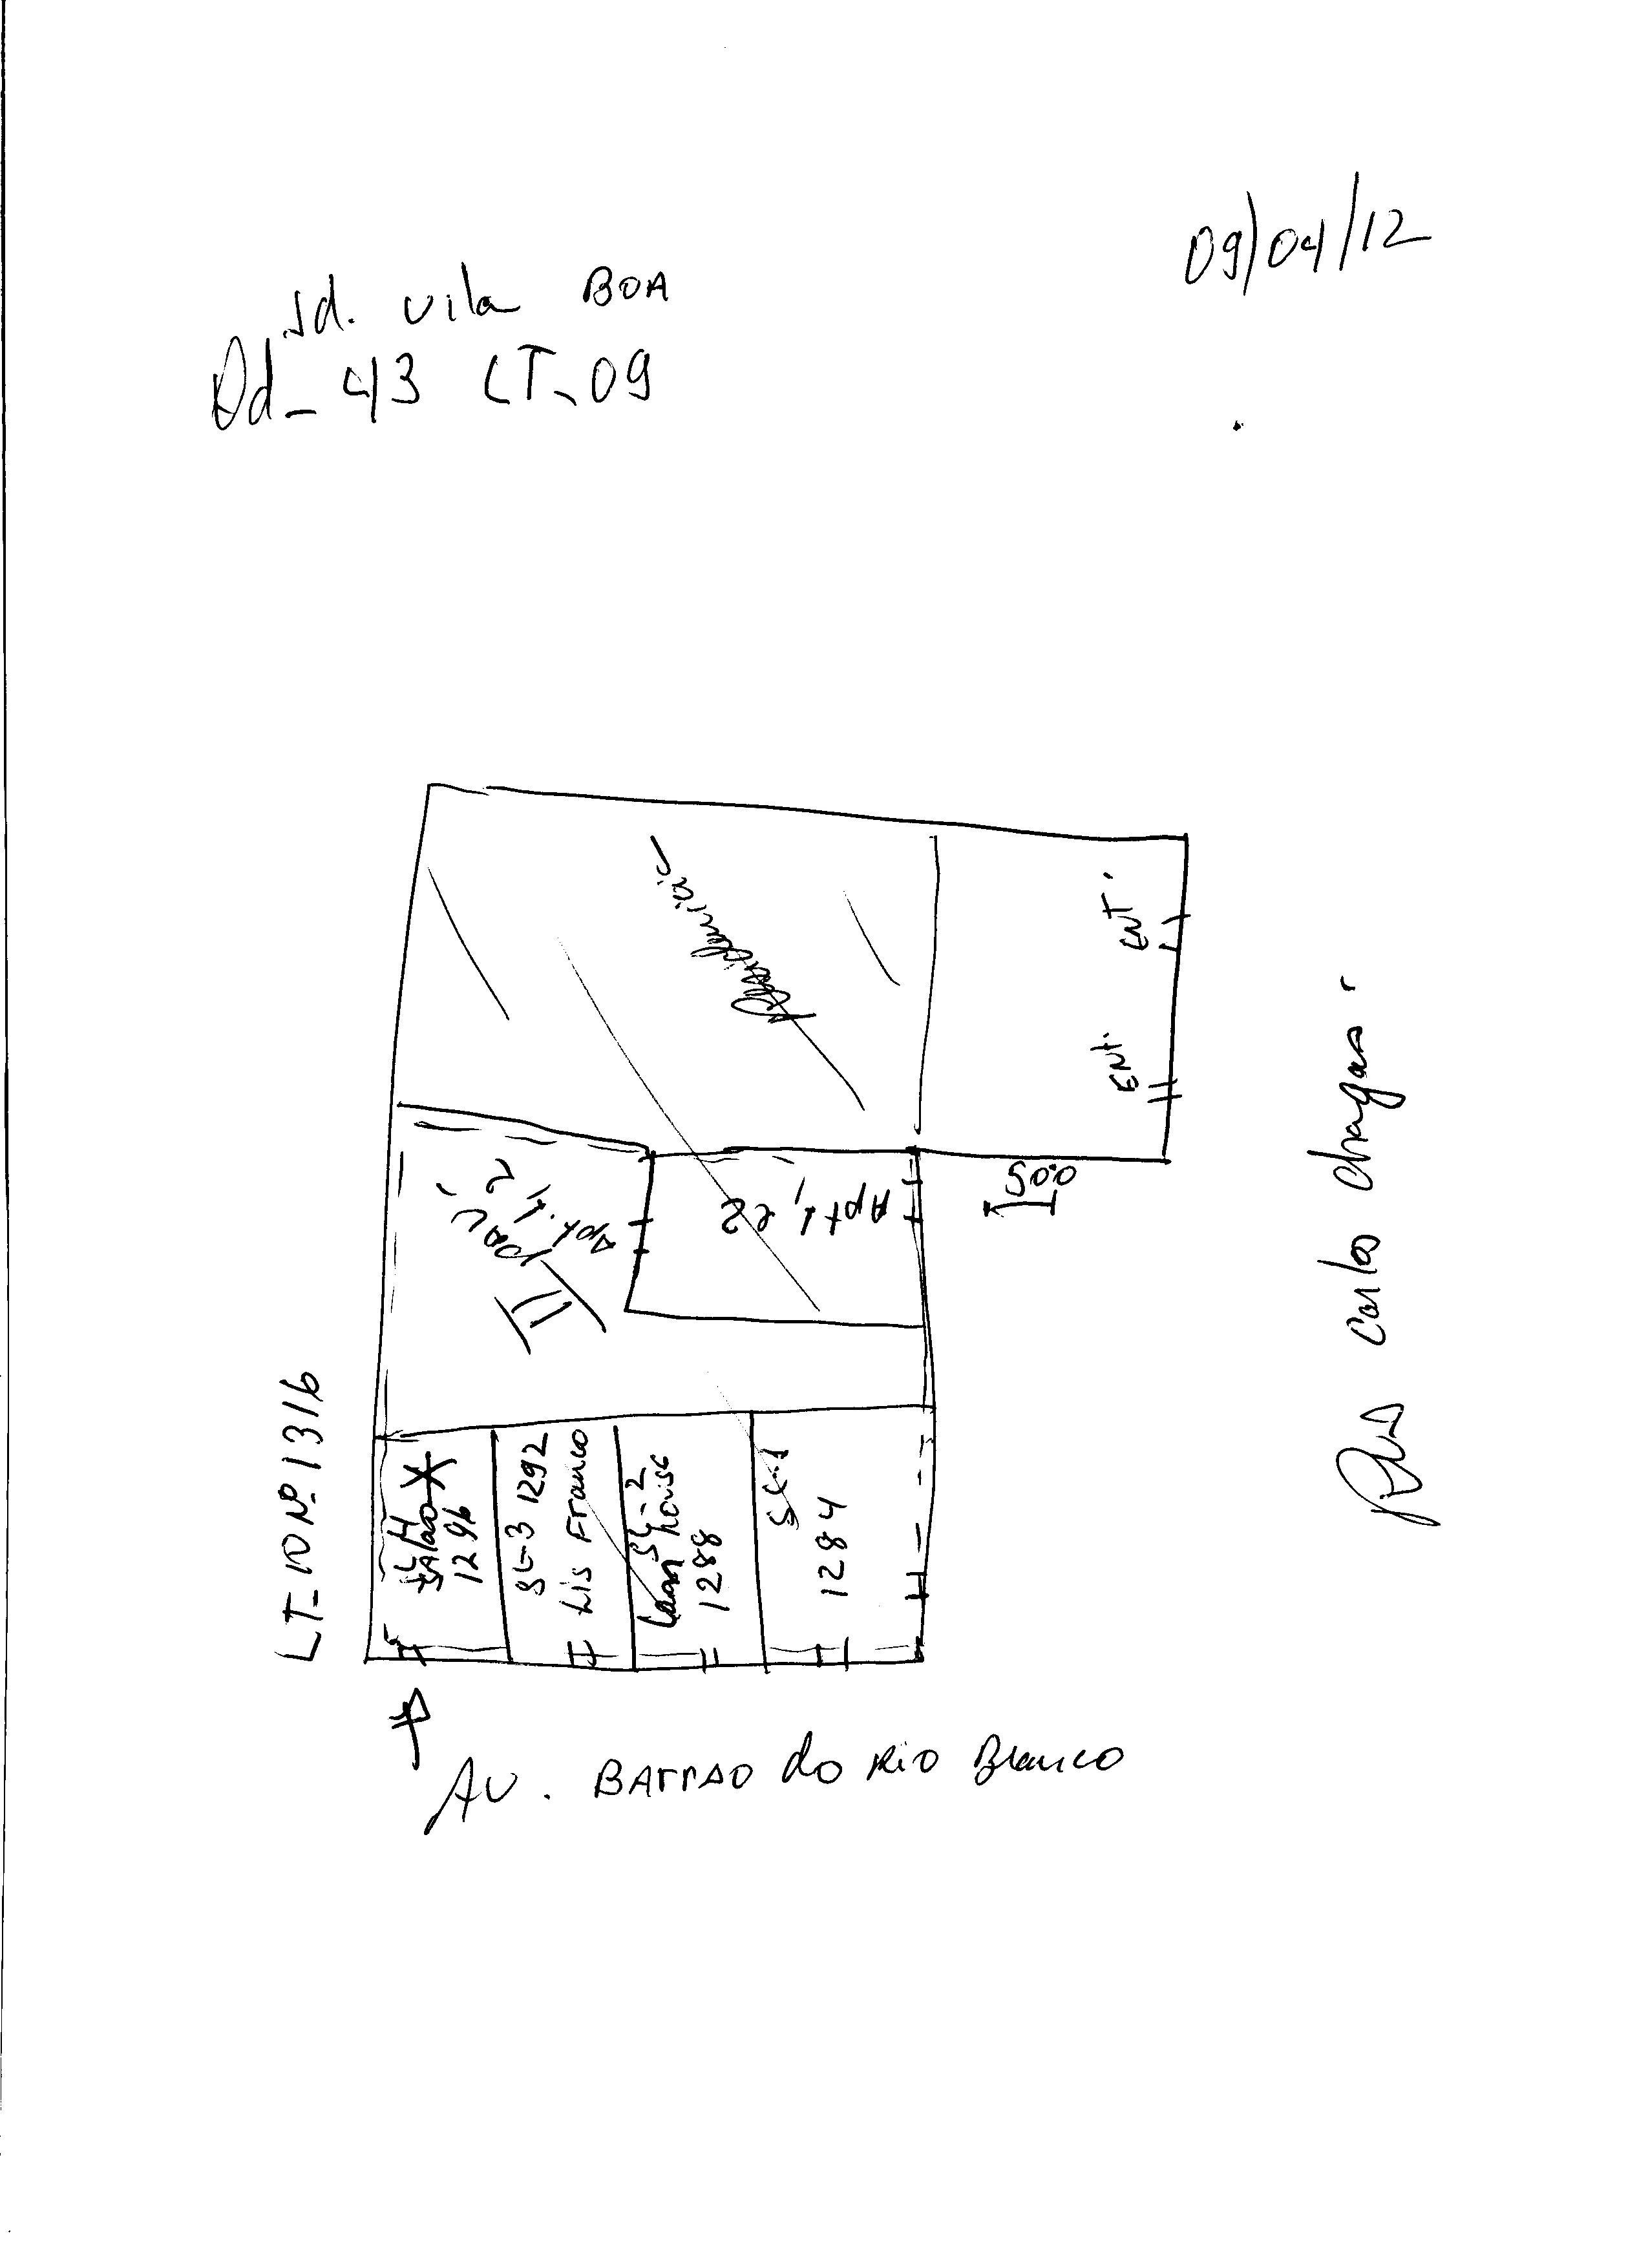 09/04/12
Jd. Vila BOA
Qd_ 43 LT_09
Residencia
ENT.
ENT.
5.00
Apt. 1, e 2
Apt. 1,
2
LT_10 Nº 1316
SL-4
1296
SL-3 1292
Lis Franco
SL-2
Lan house
1288
SL-1
1284
AV. BARRAO do Rio Branco
Rua Carlos Chagas.